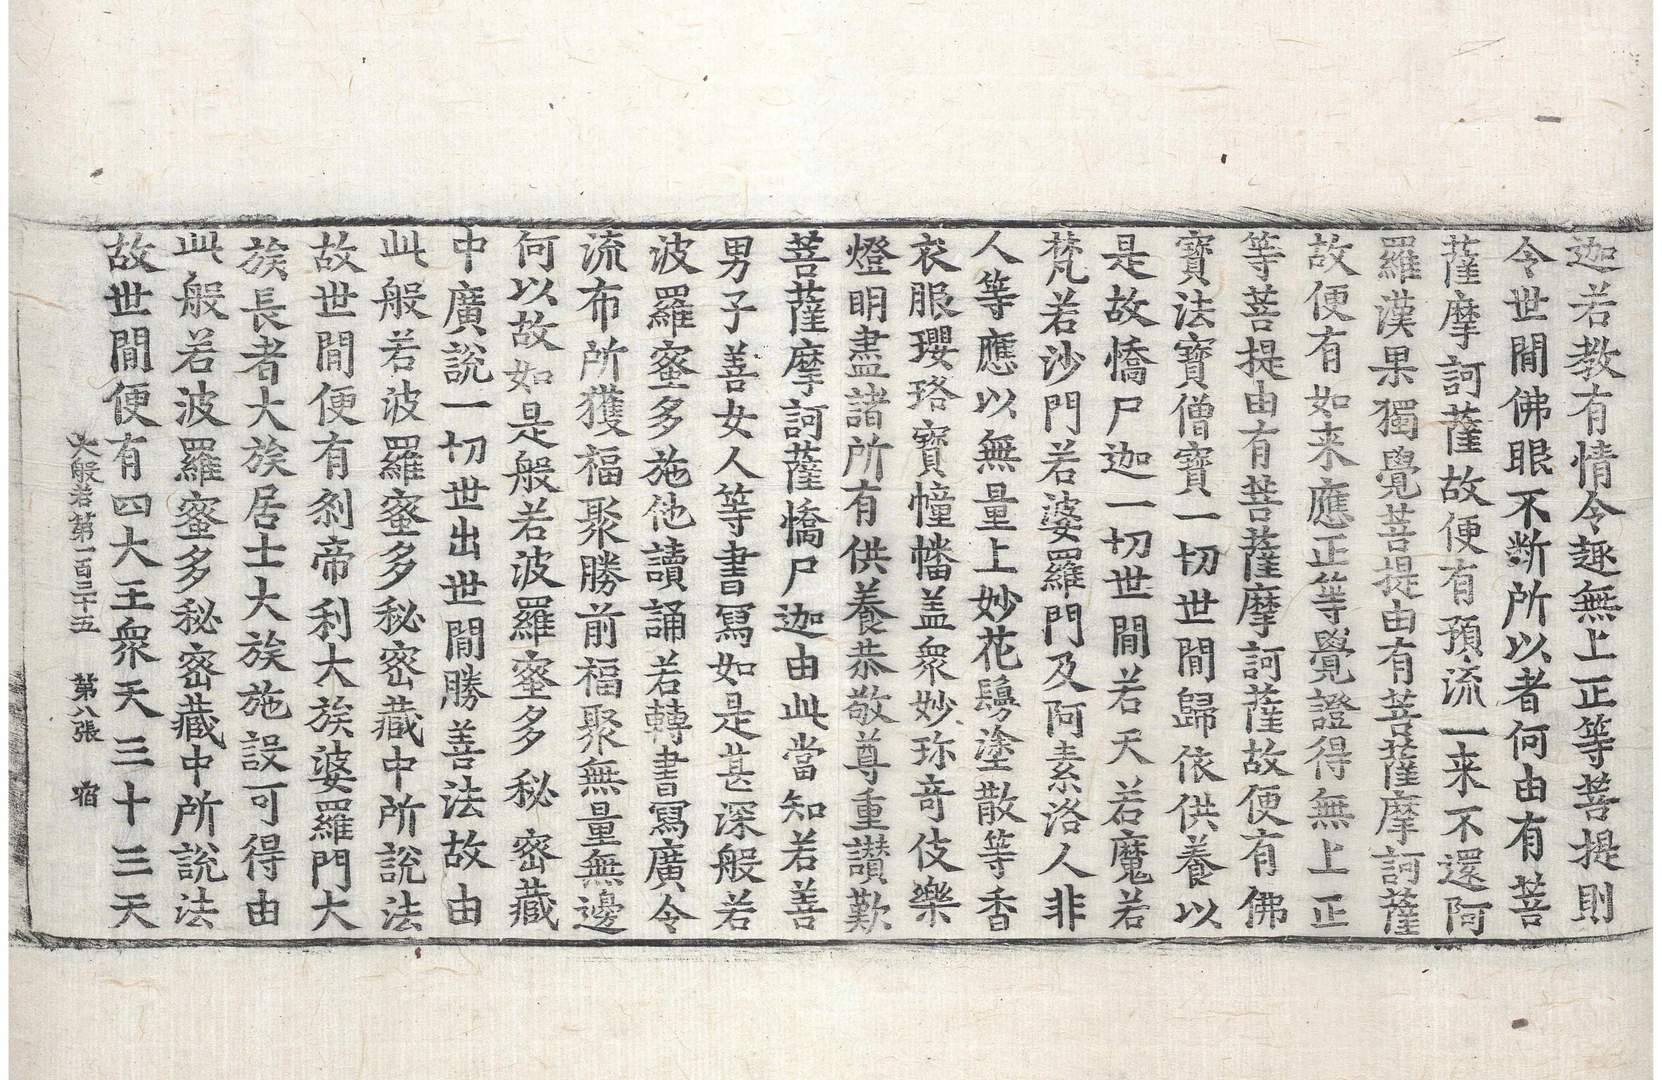 迦若教有情令趣無上正等菩提則
令世間佛眼不斷所以者何由有菩
薩摩訶薩故便有預流一来不還阿
羅漢果獨覺菩提由有菩薩摩訶薩
故便有如来應正等覺證得無上正
等菩提由有菩薩摩訶薩故便有佛
寶法寶僧寶一切世間歸依供養以
是故憍尸迦一切世間若天若魔若
梵若沙門若婆羅門及阿素洛人非
人等應以無量上妙花鬘塗散等香
衣服瓔珞寶幢幡盖衆妙珎奇伎樂
燈明盡諸所有供養恭敬尊重讃歎
菩薩摩訶薩憍尸迦由此當知若善
男子善女人等書寫如是甚深般若
波羅蜜多施他讀誦若轉書寫廣令
流布所獲福聚勝前福聚無量無邊
何以故如是般若波羅蜜多秘密藏
中廣說一切世出世間勝善法故由
此般若波羅蜜多秘密藏中所說法
故世間便有剎帝利大族婆羅門大
族長者大族居士大族施設可得由
此般若波羅蜜多秘密藏中所說法
故世間便有四大王衆天三十三天
大般若第一百三十五 第八張 宿